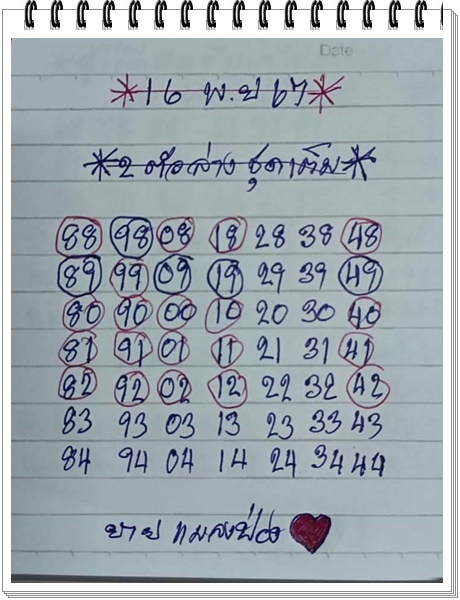 Date
*16 พ.ย 67*
*2 ตัวล่าง ชุดเต็ม*
88 98 08 18 28 38 48
89 99 09 19 29 39 49
80 90 00 10 20 30 40
81 91 01 11 21 31 41
82 92 02 12 22 32 42
83 93 03 13 23 33 43
84 94 04 14 24 34 44
ยาย แมงป่อง